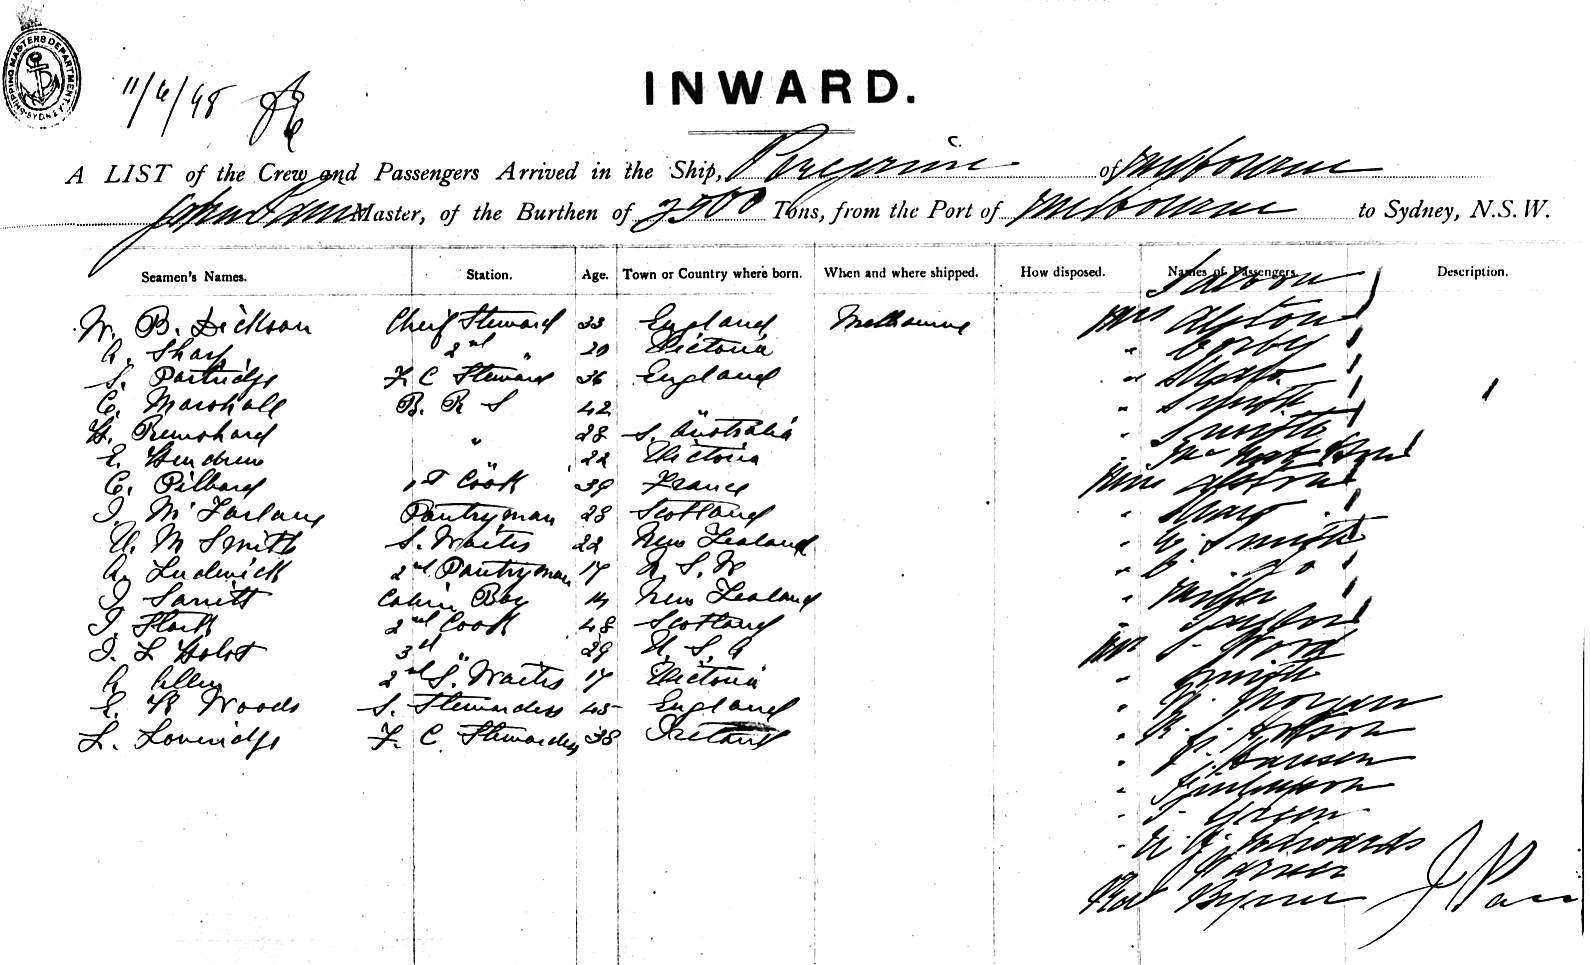 SHIPPING MASTERS DEPARTMENT SYDNEY
11/6/98
INWARD.
A LIST of the Crew and Passengers Arrived in the Ship, Peregrine of Melbourne
John Master, of the Burthen of Tons, from the Port of Melbourne to Sydney, N.S.W.
Seamen's Names. Station. Age. Town or Country where born. When and where shipped. How disposed. Names of Passengers. Description.
Saloon
W. B. Dickson Chief Steward 33 England Melbourne Mrs Alston
A. Sharp 2nd " 20 Victoria " Corby
S. Partridge F C Steward 36 England "
C. Marshall B. R S 42 " " Smith
H. " 28 S. Australia " Smith
E. Hendren 22 Victoria "
C. Pilbard 1st Cook 39 France Miss Alston
J. McFarlane Pantryman 28 Scotland " Sharp
U. M Smith S. Waiter 22 New Zealand " E. Smith
A. Ludwick 2nd Pantryman 17 N S. W " C. do
J. Cabin Boy 14 New Zealand " Miller
J. 2nd Cook 48 Scotland "
J. L Holst 3rd " 29 U. S. A Mr J. Ward
A Allen 2nd S. Waiter 17 Victoria " Smith
E. B Woods S. Stewardess 45 England " Morgan
L. Loveridge F. C. Stewardess 38 Ireland "
" J. Hansen
"
" J. Green
" Edwards
Warner
Rev Byrne